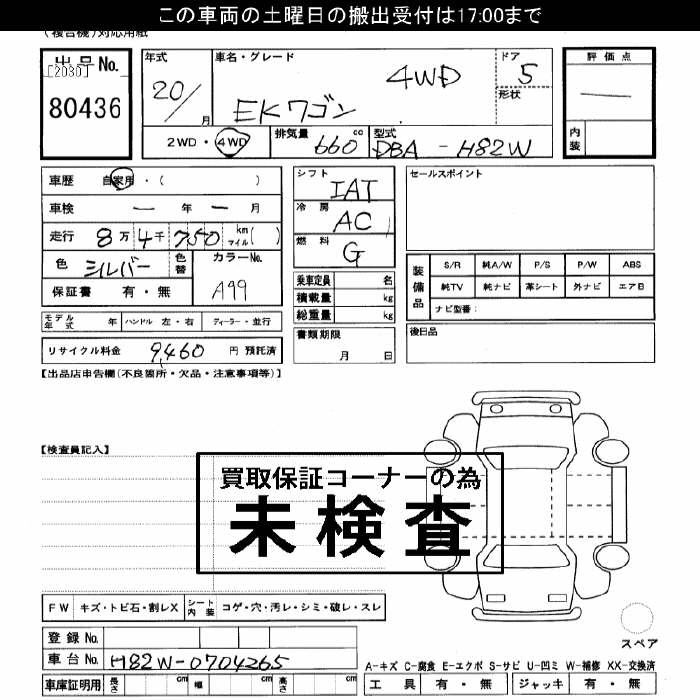 この車両の土曜日の搬出受付は17:00まで
(複合機)対応用紙
出品No. [2030] 80436
年式 20/月
車名・グレード EKワゴン 4WD
ドア 5
形状
評価点 —
内装
2WD・4WD
排気量 660 cc
型式 DBA-H82W
車歴 自家用・( )
車検 — 年 — 月
走行 8万4千750 km マイル( )
色 シルバー 色替
カラーNo. A99
保証書 有・無
モデル年式 年 ハンドル 左・右 ディーラー・並行
リサイクル料金 9,460 円 預託済
シフト IAT
冷房 AC
燃料 G
乗車定員 名
積載量 kg
総重量 kg
書類期限 月 日
セールスポイント
装備品 S/R 純A/W P/S P/W ABS
純TV 純ナビ 革シート 外ナビ エアB
ナビ型番:
後日品
【出品店申告欄(不良箇所・欠品・注意事項等)】
【検査員記入】
買取保証コーナーの為
未検査
FW キズ・トビ石・割レX シート内装 コゲ・穴・汚レ・シミ・破レ・スレ
登録No.
車台No. H82W-0704265
車庫証明用 長さ cm 幅 cm 高さ cm
スペア
A-キズ C-腐食 E-エクボ S-サビ U-凹ミ W-補修 XX-交換済
工具 有・無 ジャッキ 有・無